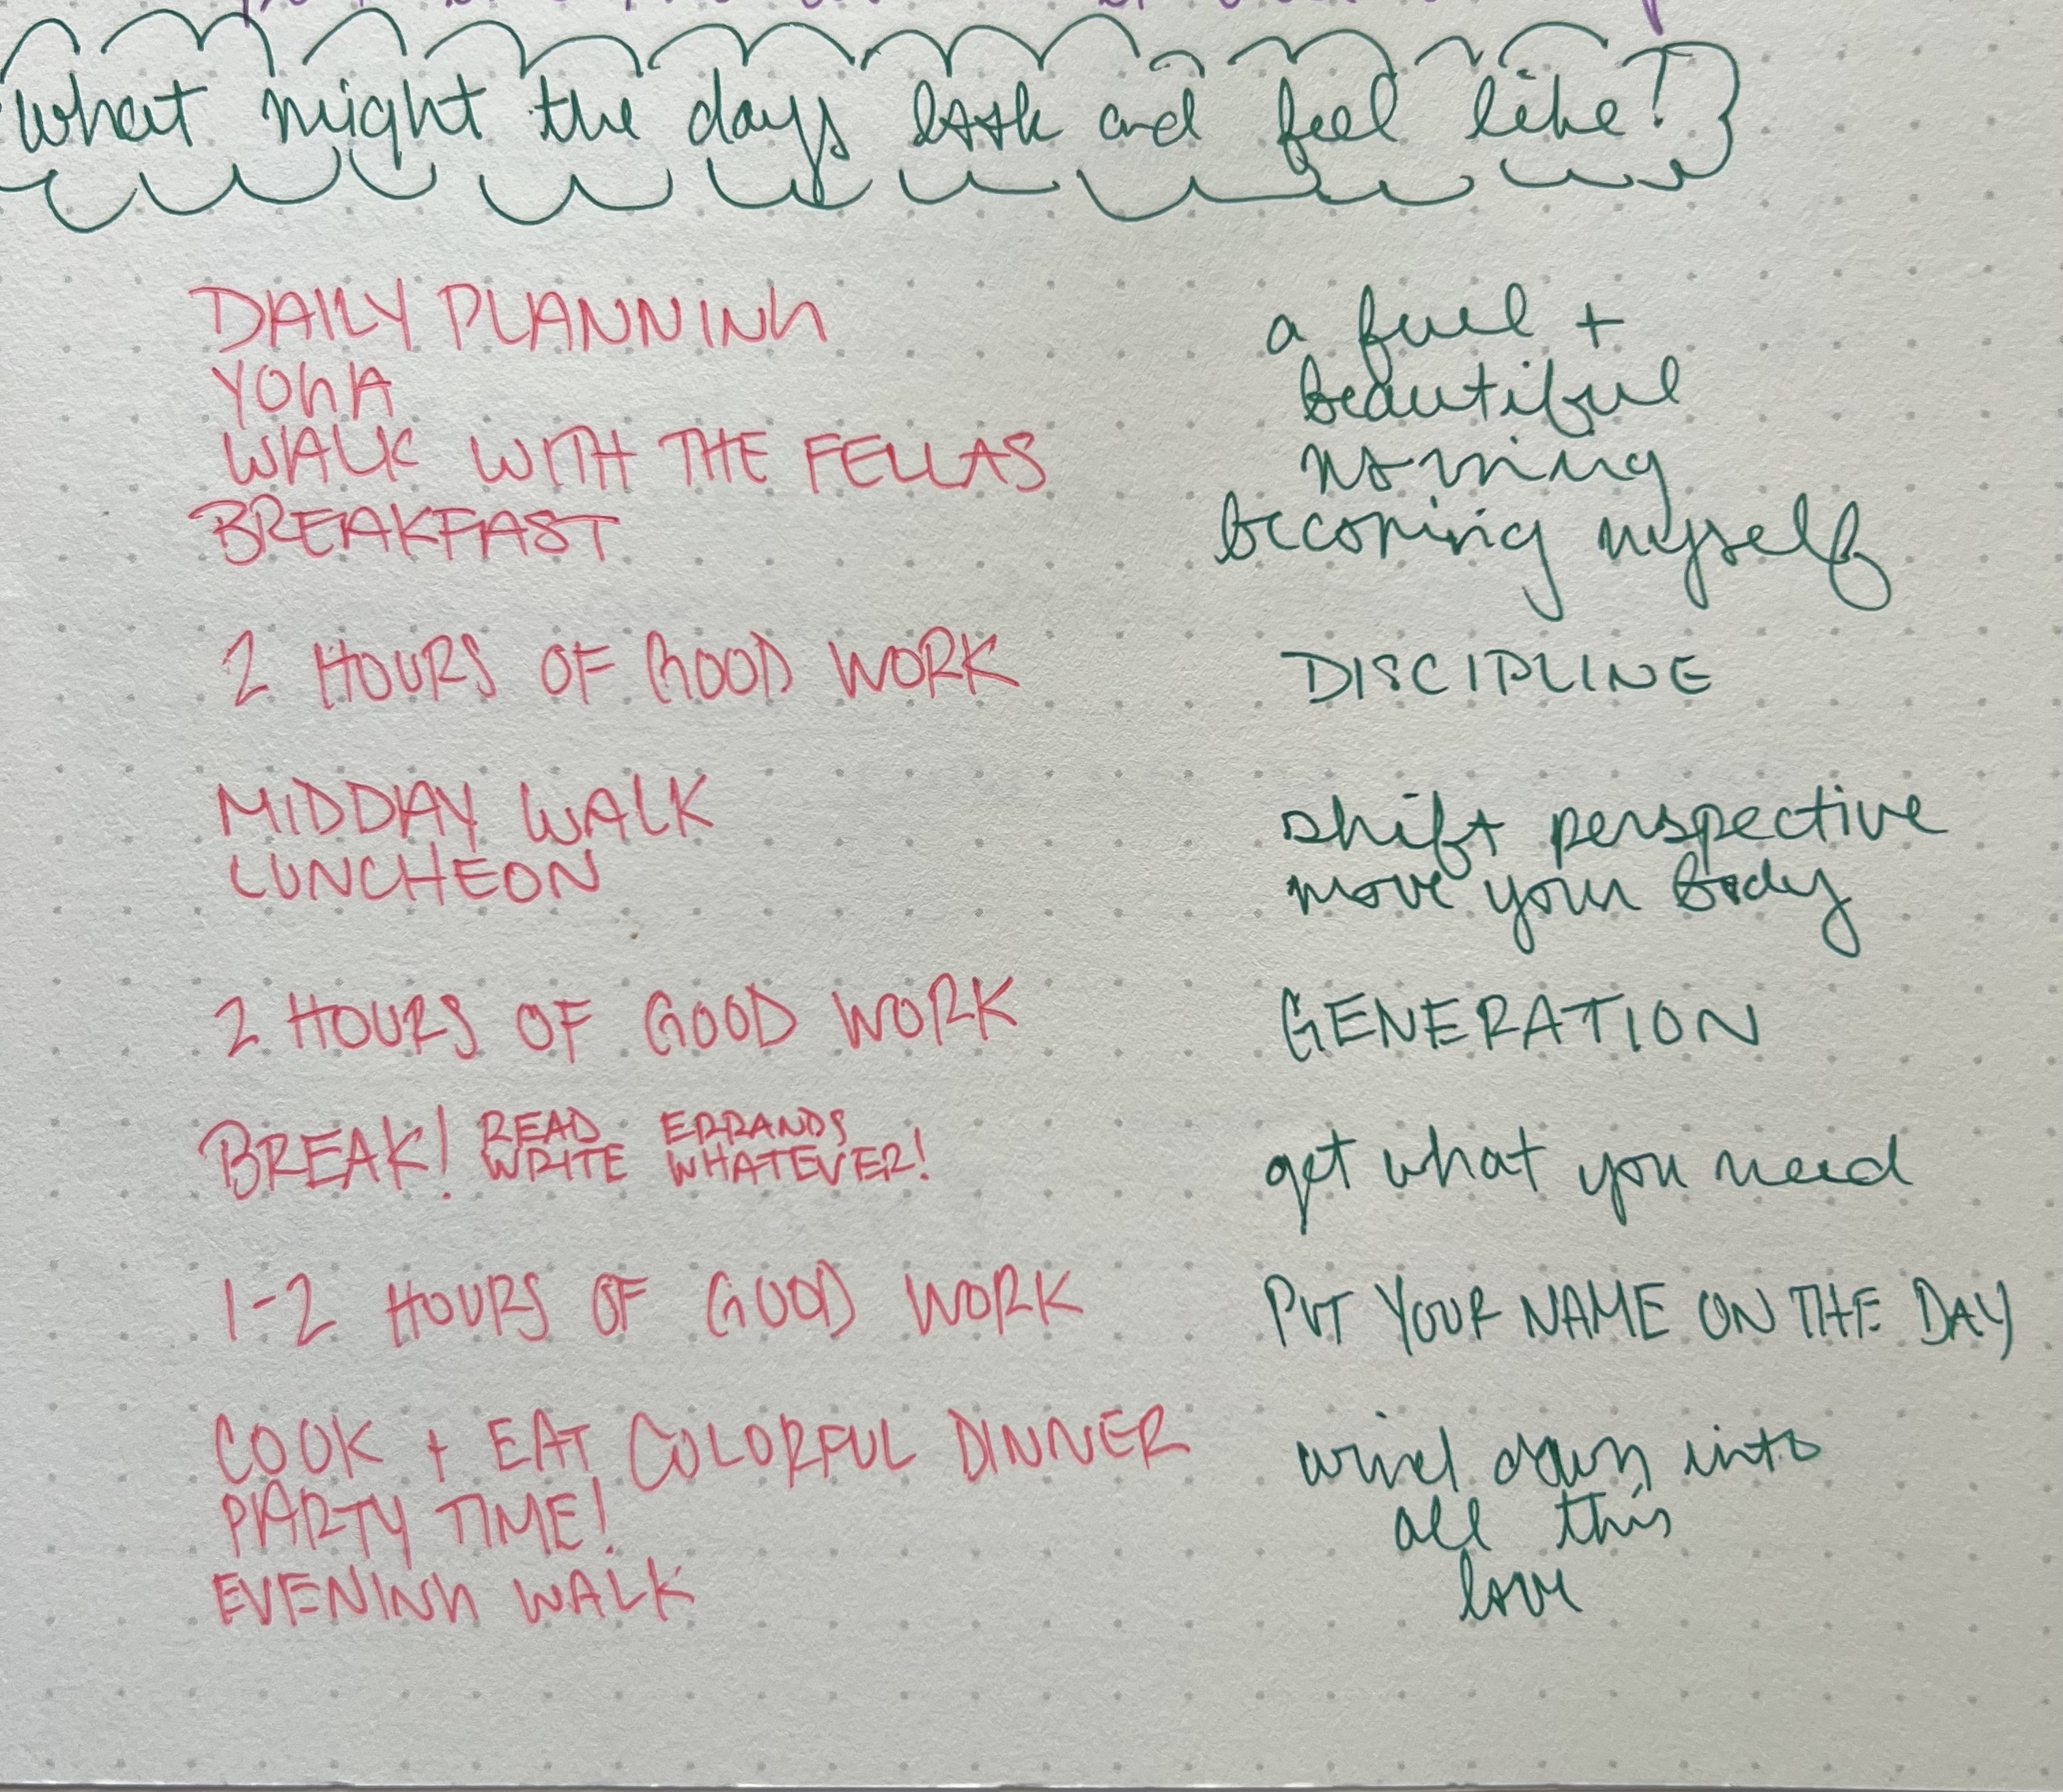 what might the days look and feel like?
DAILY PLANNING
a full +
YOGA
beautiful
WALK WITH THE FELLAS
morning
BREAKFAST
becoming myself
2 HOURS OF GOOD WORK
DISCIPLINE
MIDDAY WALK
shift perspective
LUNCHEON
move your body
2 HOURS OF GOOD WORK
GENERATION
BREAK! READ ERRANDS
WRITE WHATEVER!
get what you need
1-2 HOURS OF GOOD WORK
PUT YOUR NAME ON THE DAY
COOK + EAT COLORFUL DINNER
wind down into
PARTY TIME!
all this
EVENING WALK
love